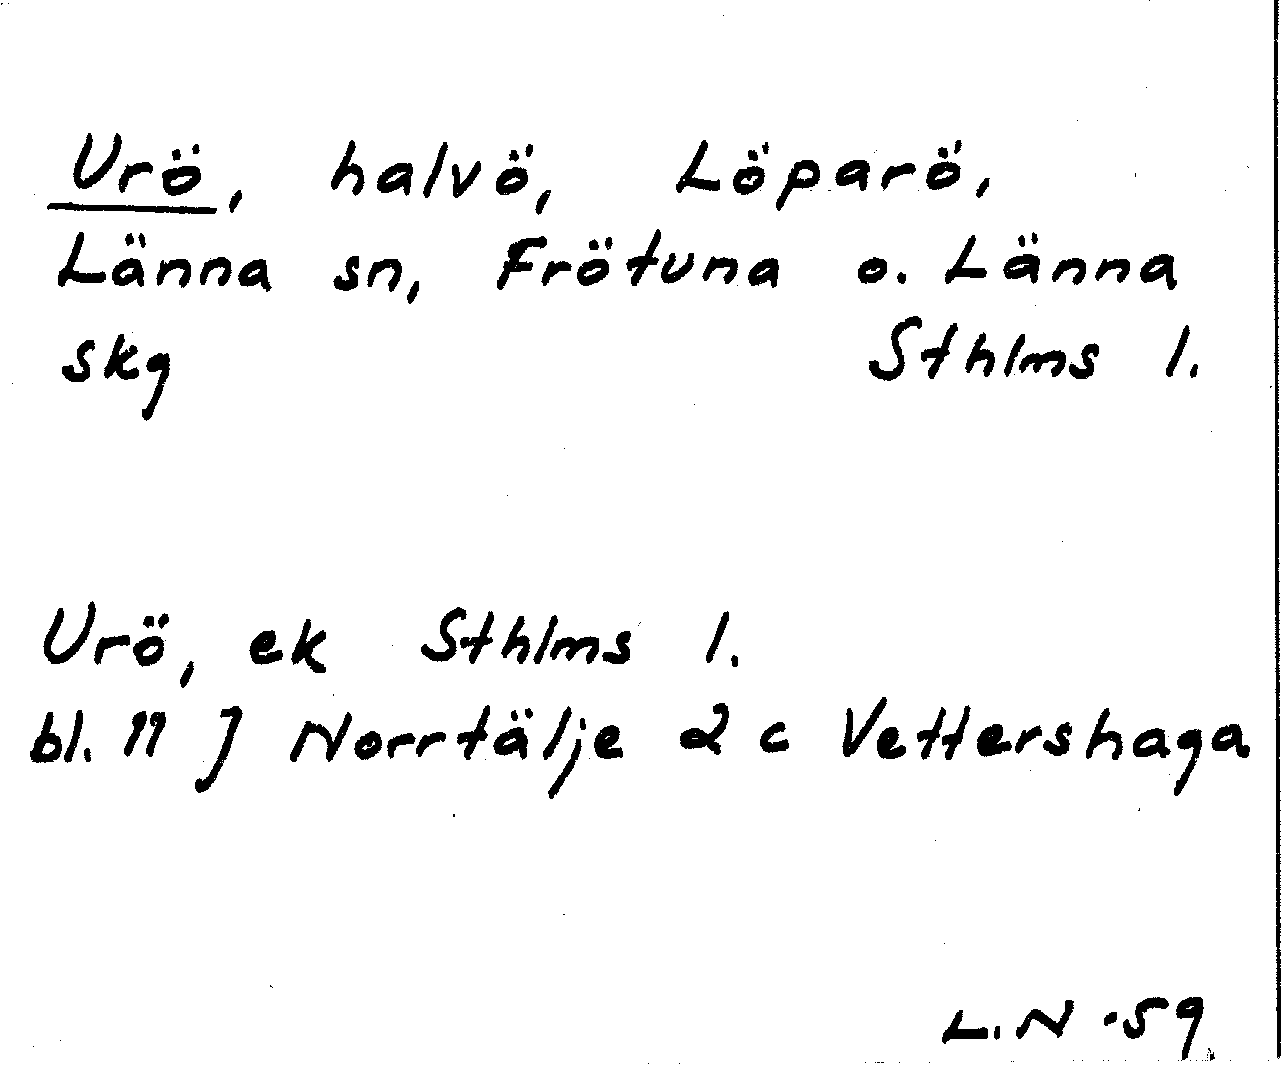 Urö, halvö, Löparö,
Länna sn, Frötuna o. Länna
skg Sthlms l.
Urö, ek Sthlms l.
bl. 11 J Norrtälje 2 c Vettershaga
L.N -59